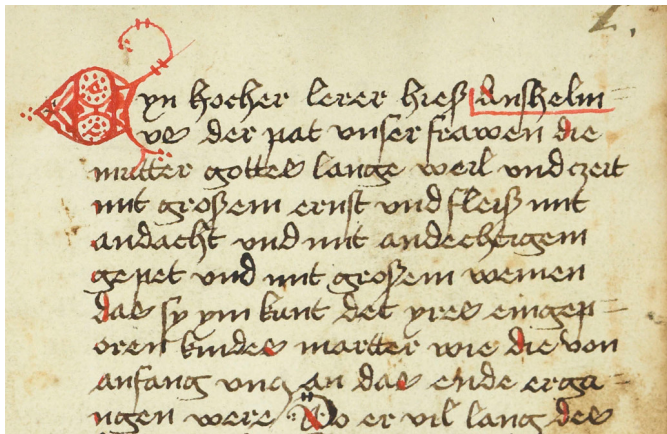 Eyn hocher lerer hieß anshelm=
us der pat unser frawen die
mutter gottes lange weil und czeit
mit großem ernst und fleiß mit
andacht und mit andechtigem
gepet und mit großem weinen
das sy ym kunt det yres eingep=
oren kindes martter wie die von
anfang uncz an das ende erga=
ngen were Do er vil lang des